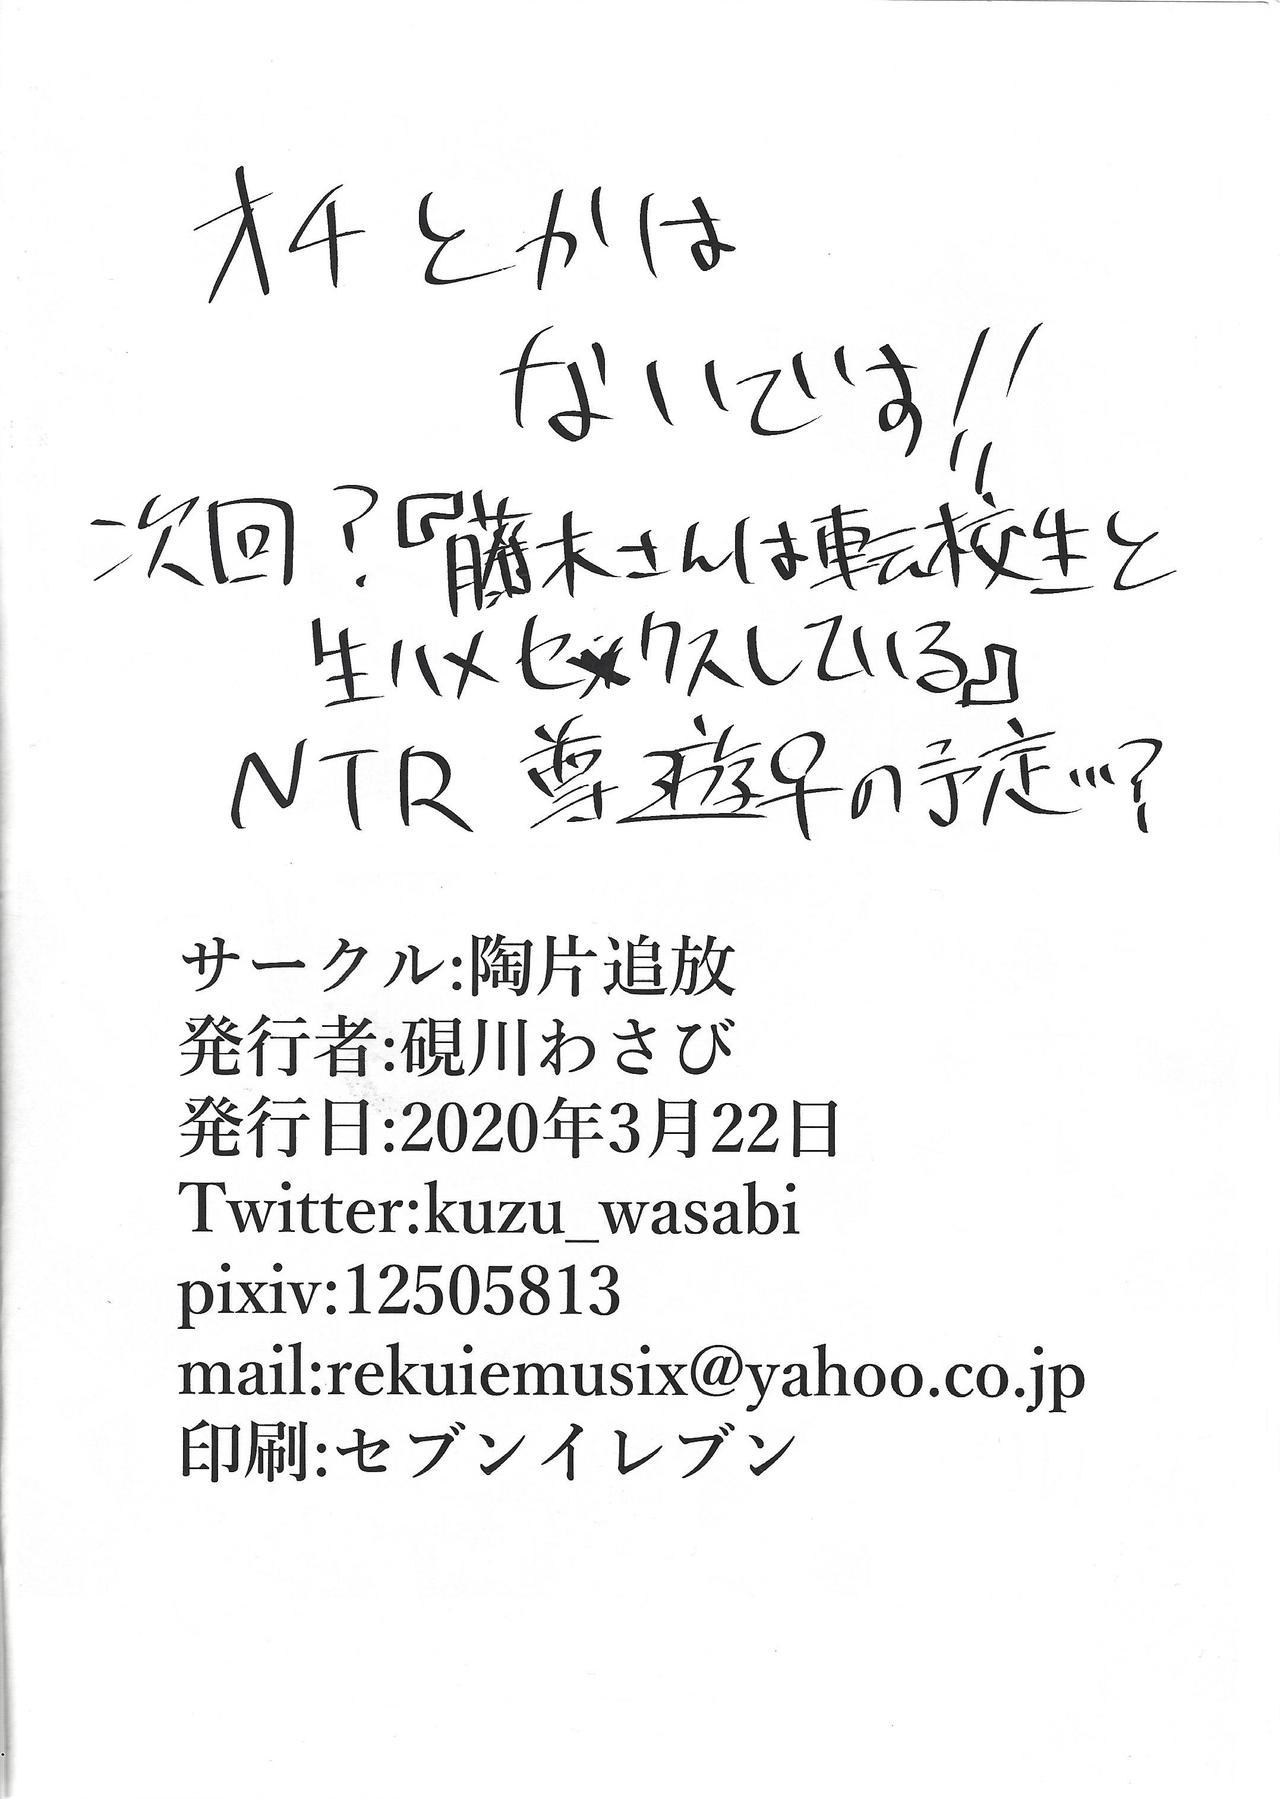 オチとかは
ないです!!
次回？『藤木さんは転校生と
生ハメセックスしている』
NTR 尊遊♀の予定…?
サークル:陶片追放
発行者:硯川わさび
発行日:2020年3月22日
Twitter:kuzu_wasabi
pixiv:12505813
mail:rekuiemusix@yahoo.co.jp
印刷:セブンイレブン